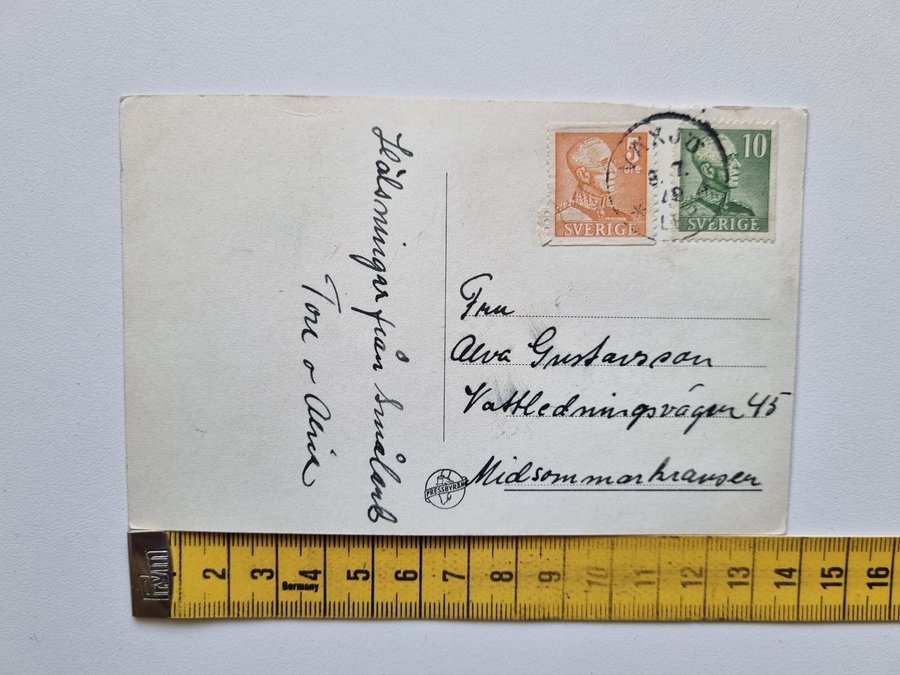 Hälsningar från Småland
Tore o Alvie
5
öre
SVERIGE
10
SVERIGE
VÄXJÖ
8. 7.
Fru
Alva Gustavsson
Vattledningsvägen 45
Midsommarkransen
PRESSBYRÅN
2 3 4 5 6 7 8 9 10 11 12 13 14 15 16
Germany